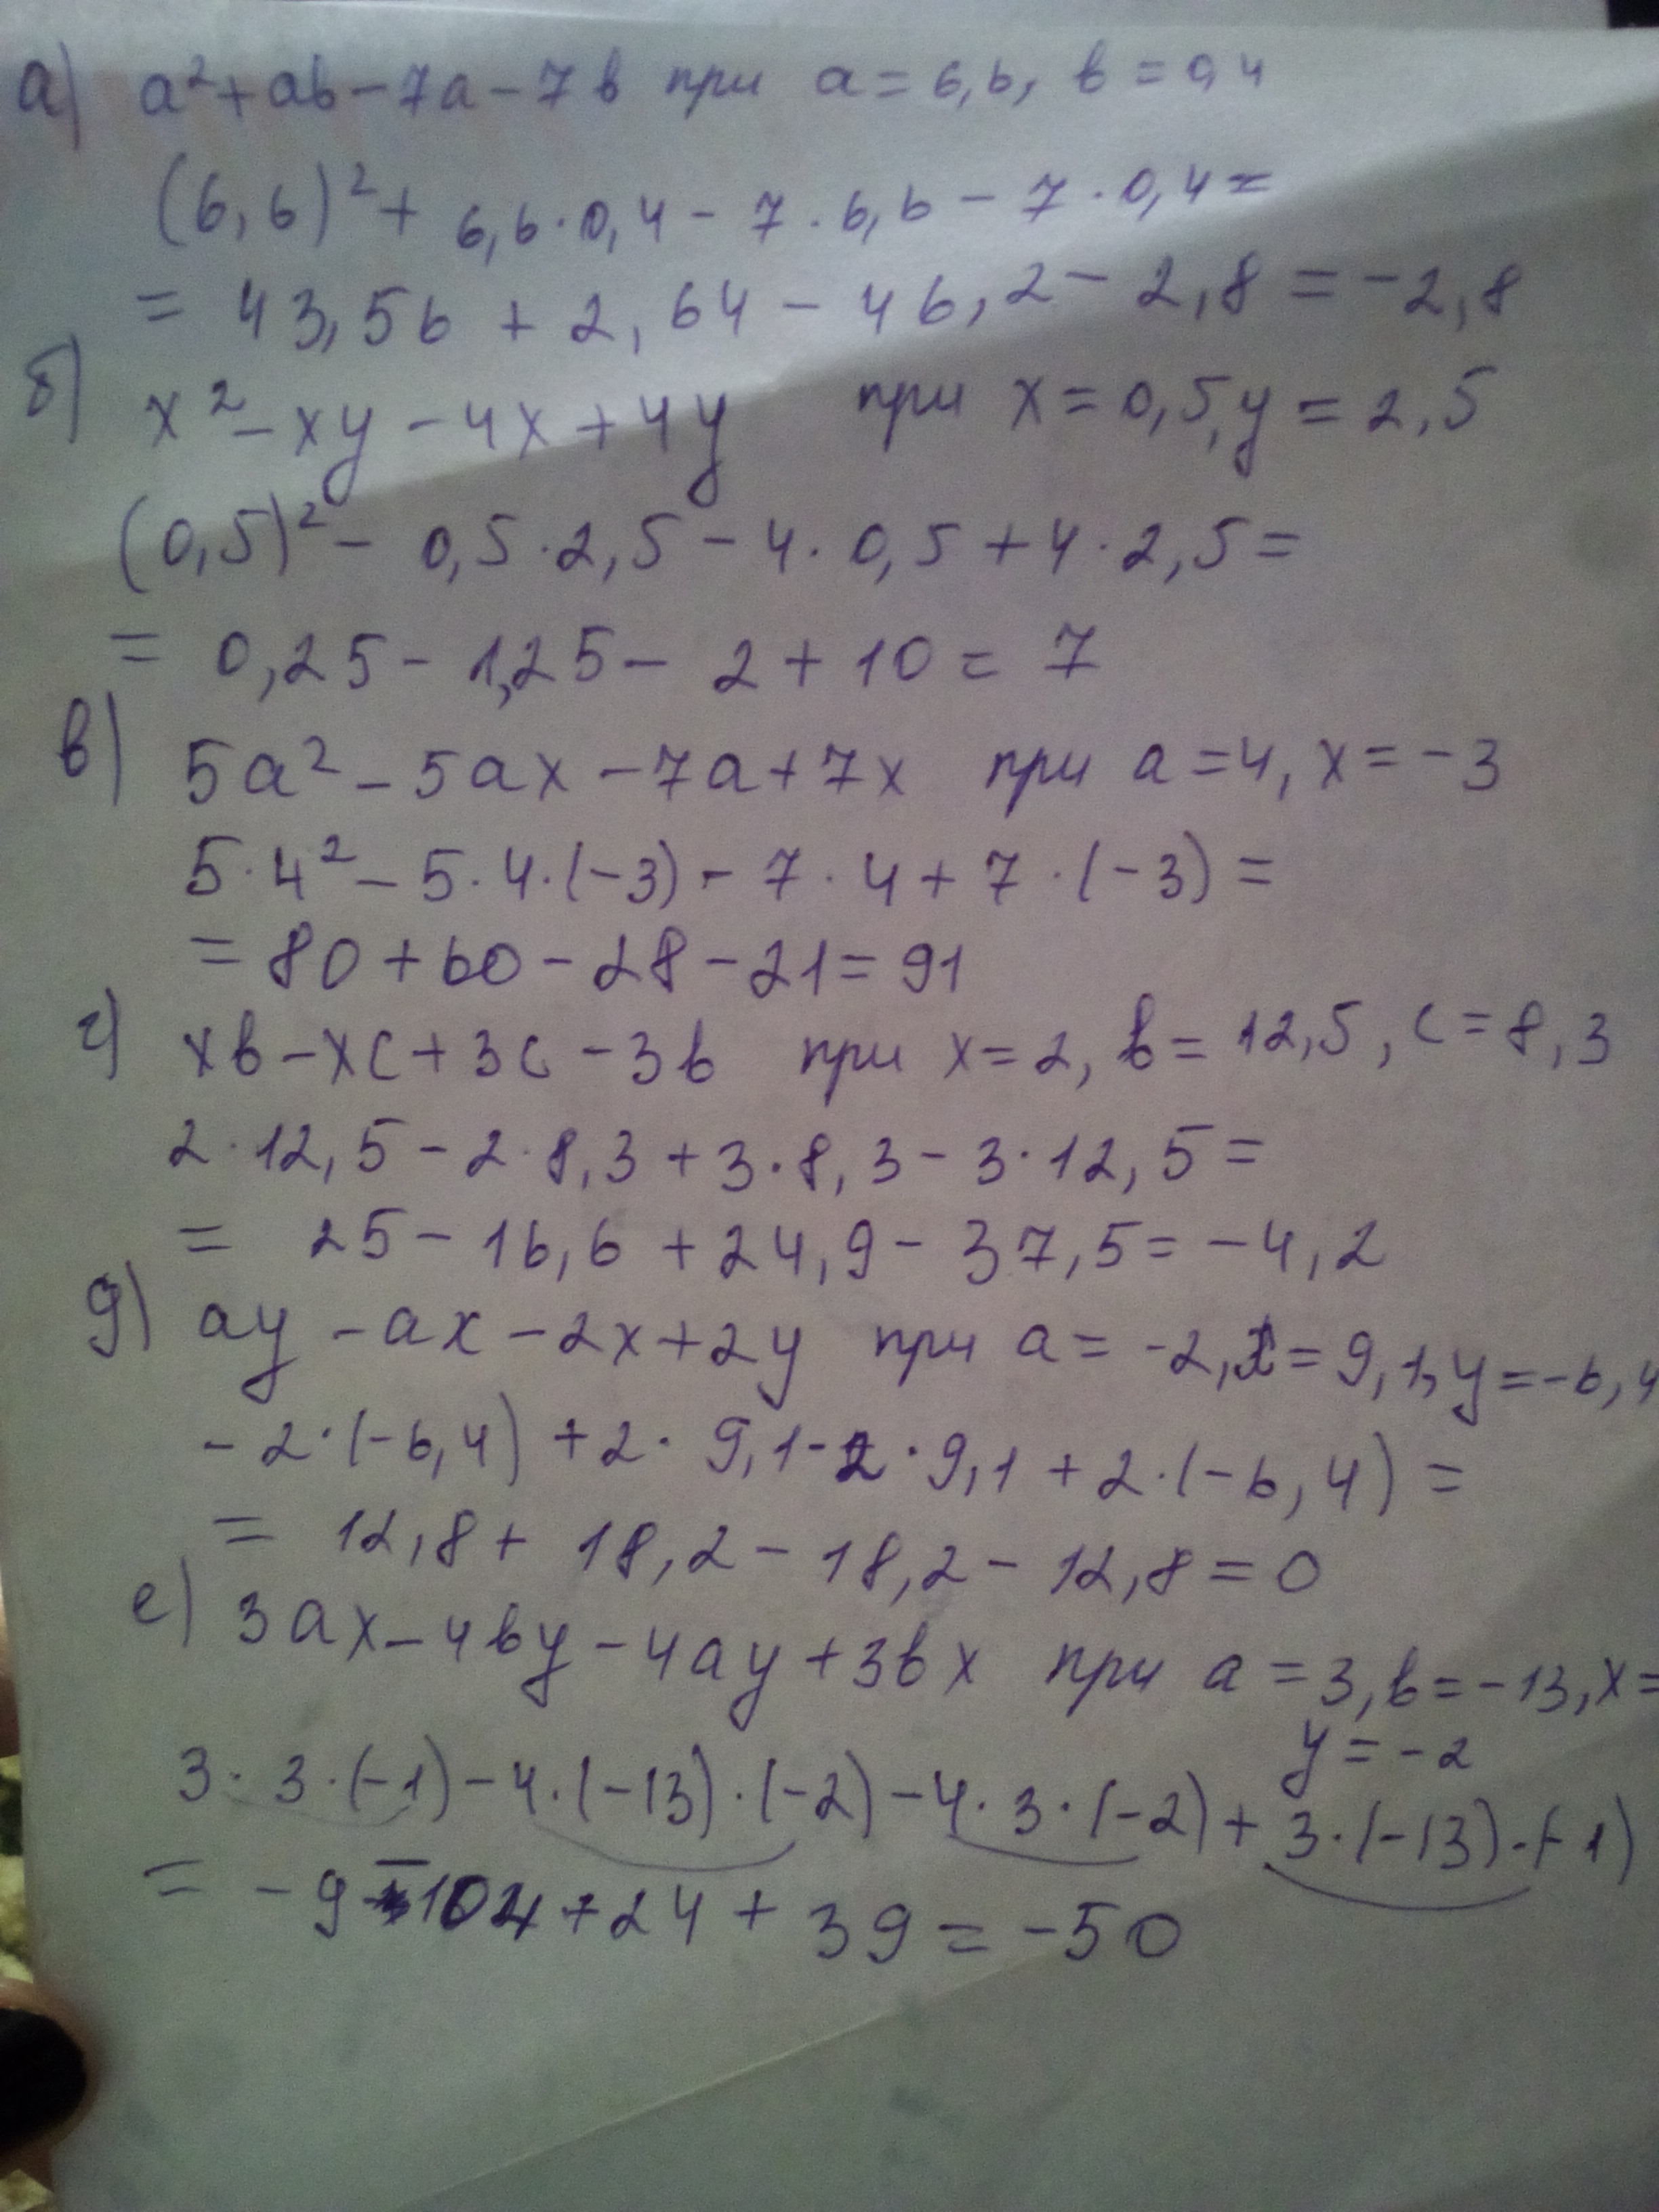 а) a²+ab-7a-7b при a=6,6, b=0,4
(6,6)²+6,6·0,4-7·6,6-7·0,4=
=43,56+2,64-46,2-2,8=-2,8
б) x²-xy-4x+4y при x=0,5, y=2,5
(0,5)²-0,5·2,5-4·0,5+4·2,5=
=0,25-1,25-2+10=7
в) 5a²-5ax-7a+7x при a=4, x=-3
5·4²-5·4·(-3)-7·4+7·(-3)=
=80+60-28-21=91
г) xb-xc+3c-3b при x=2, b=12,5, c=8,3
2·12,5-2·8,3+3·8,3-3·12,5=
=25-16,6+24,9-37,5=-4,2
д) ay-ax-2x+2y при a=-2, x=9,1, y=-6,4
-2·(-6,4)+2·9,1-2·9,1+2·(-6,4)=
=12,8+18,2-18,2-12,8=0
е) 3ax-4by-4ay+3bx при a=3, b=-13, x=
y=-2
3·3·(-1)-4·(-13)·(-2)-4·3·(-2)+3·(-13)·(-1)
=-9-104+24+39=-50